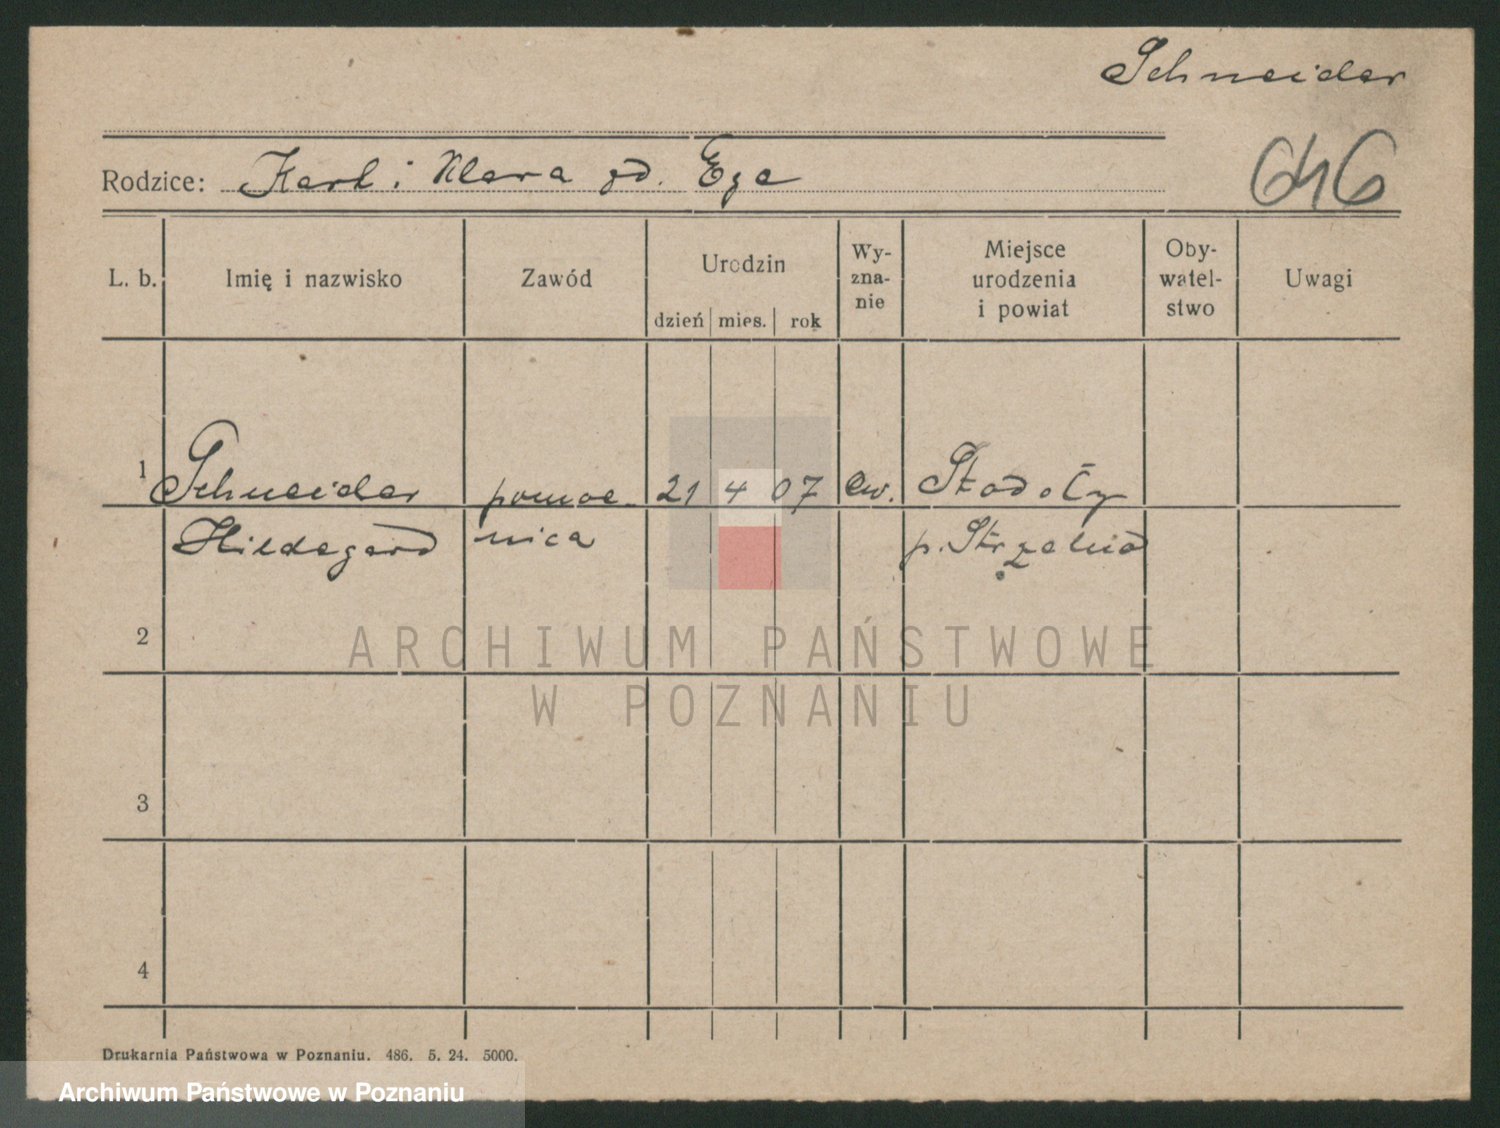 Schneider
Rodzice: Karl i Klara gd. Ege
646
L. b. Imię i nazwisko Zawód Urodzin Wy- Miejsce Oby- Uwagi
zna- urodzenia watel-
nie i powiat stwo
dzień mies. rok
1 Schneider pomoc- 21 4 07 Ew. Stodoły
Hildegard nica p. Strzelno
2
3
4
ARCHIWUM PAŃSTWOWE
W POZNANIU
Drukarnia Państwowa w Poznaniu. 486. 5. 24. 5000.
Archiwum Państwowe w Poznaniu